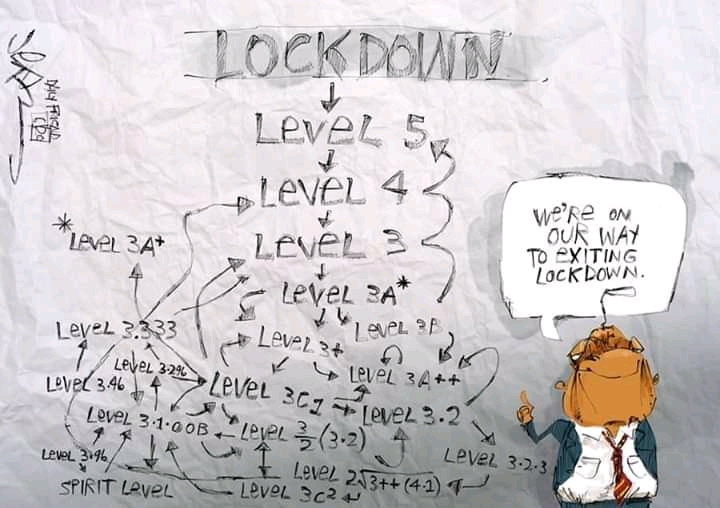 LOCKDOWN
LEVEL 5
LEVEL 4
LEVEL 3
*LEVEL 3A+
LEVEL 3A*
LEVEL 3.333
LEVEL 3+
LEVEL 3B
LEVEL 3.296
LEVEL 3.46
LEVEL 3C1
LEVEL 3A++
LEVEL 3.1.00B
LEVEL 3/2(3.2)
LEVEL 3.2
LEVEL 3.96
LEVEL 3.2.3
SPIRIT LEVEL
LEVEL 2√3++(4.1)
LEVEL 3C2
WE'RE ON
OUR WAY
TO EXITING
LOCKDOWN.